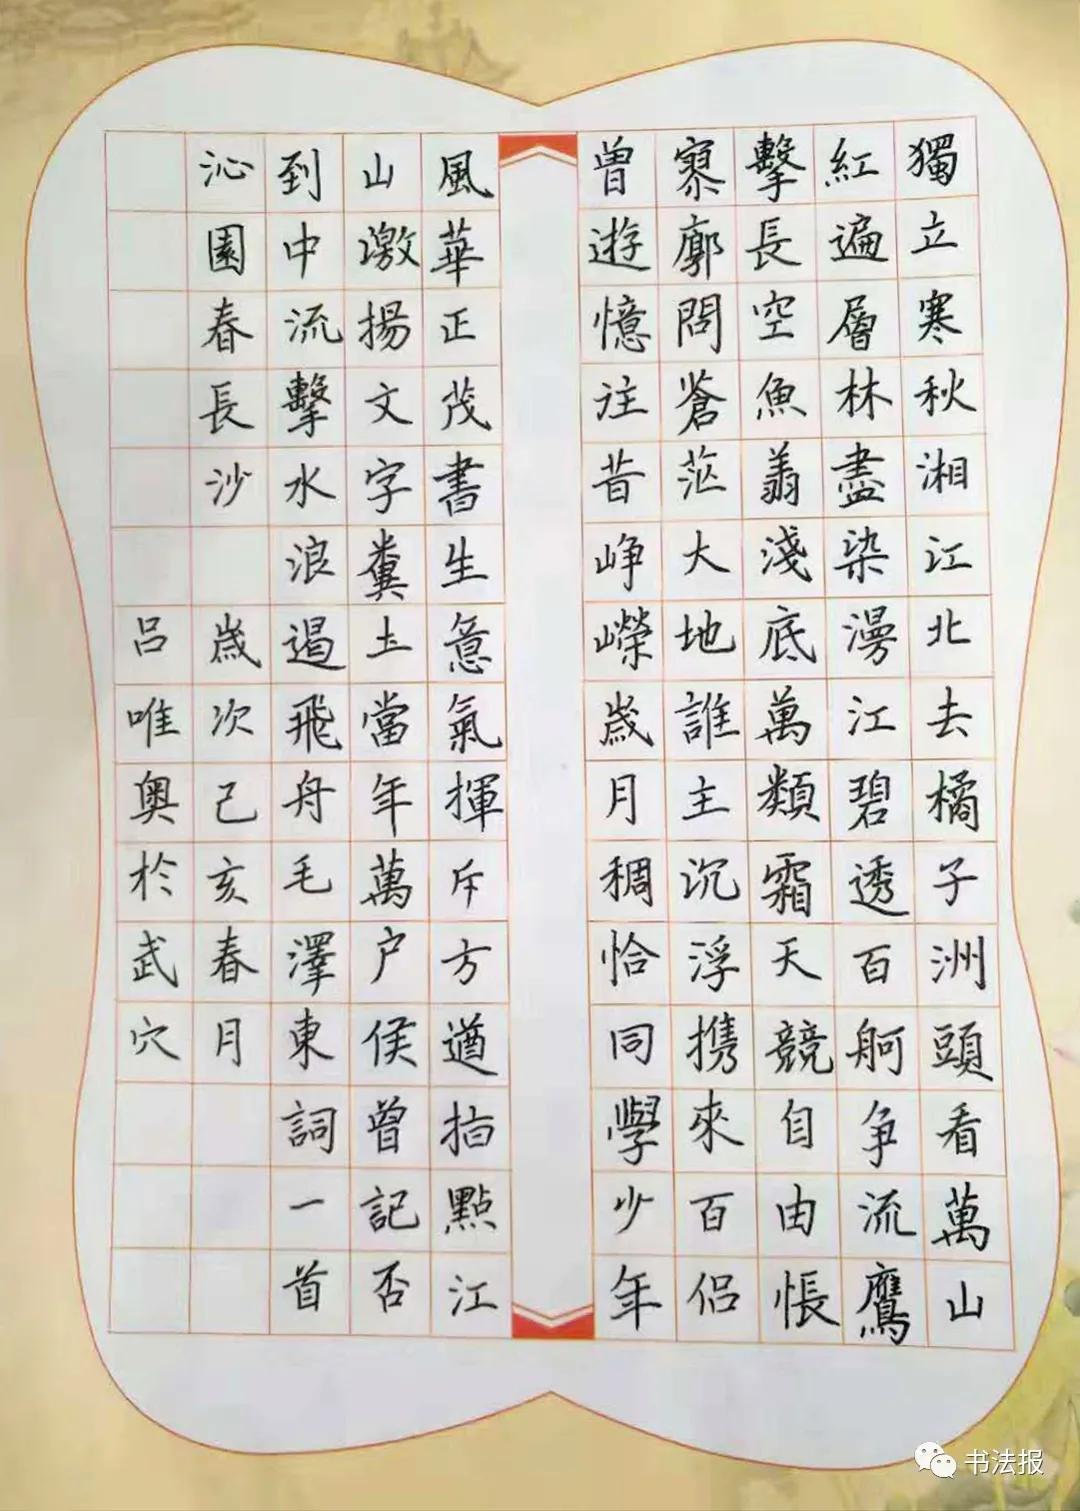 獨立寒秋湘江北去橘子洲頭看萬山
紅遍層林盡染漫江碧透百舸争流鷹
擊長空魚翔淺底萬類霜天競自由悵
寥廓問蒼茫大地誰主沉浮携來百侣
曾遊憶往昔崢嶸歲月稠恰同學少年
風華正茂書生意氣揮斥方遒指點江
山激揚文字糞土當年萬户侯曾記否
到中流擊水浪遏飛舟毛澤東詞一首
沁園春長沙 歲次己亥春月
吕唯奥於武穴
书法报